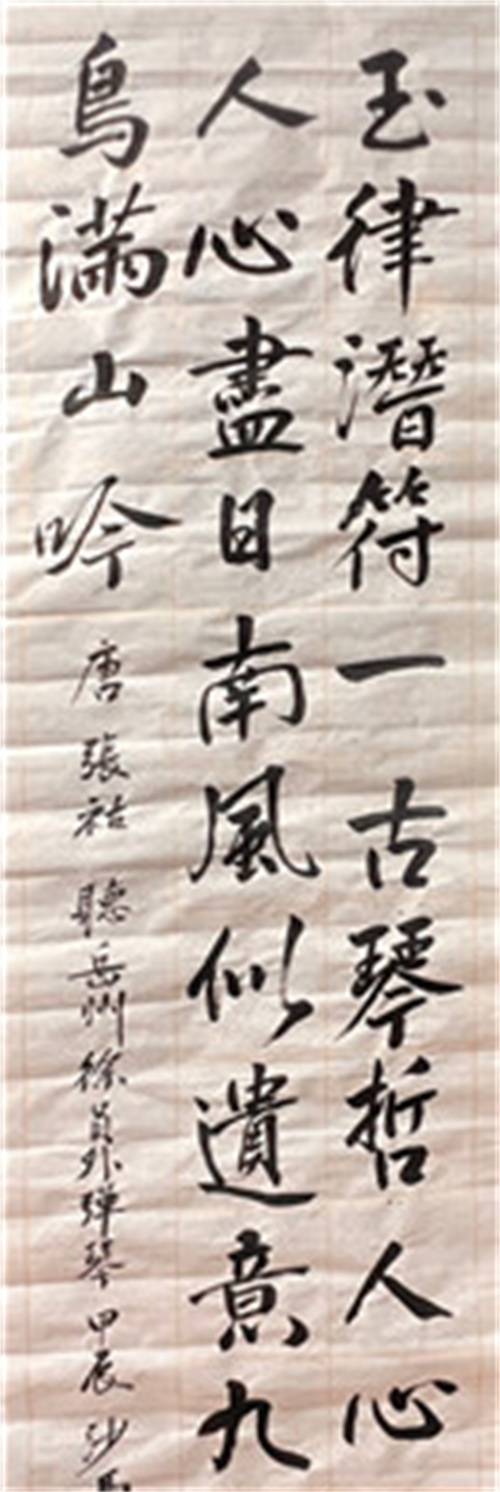 玉律潛符一古琴哲人心
人心盡日南風似遺意九
鳥滿山吟唐張祜聽岳州徐員外彈琴甲辰